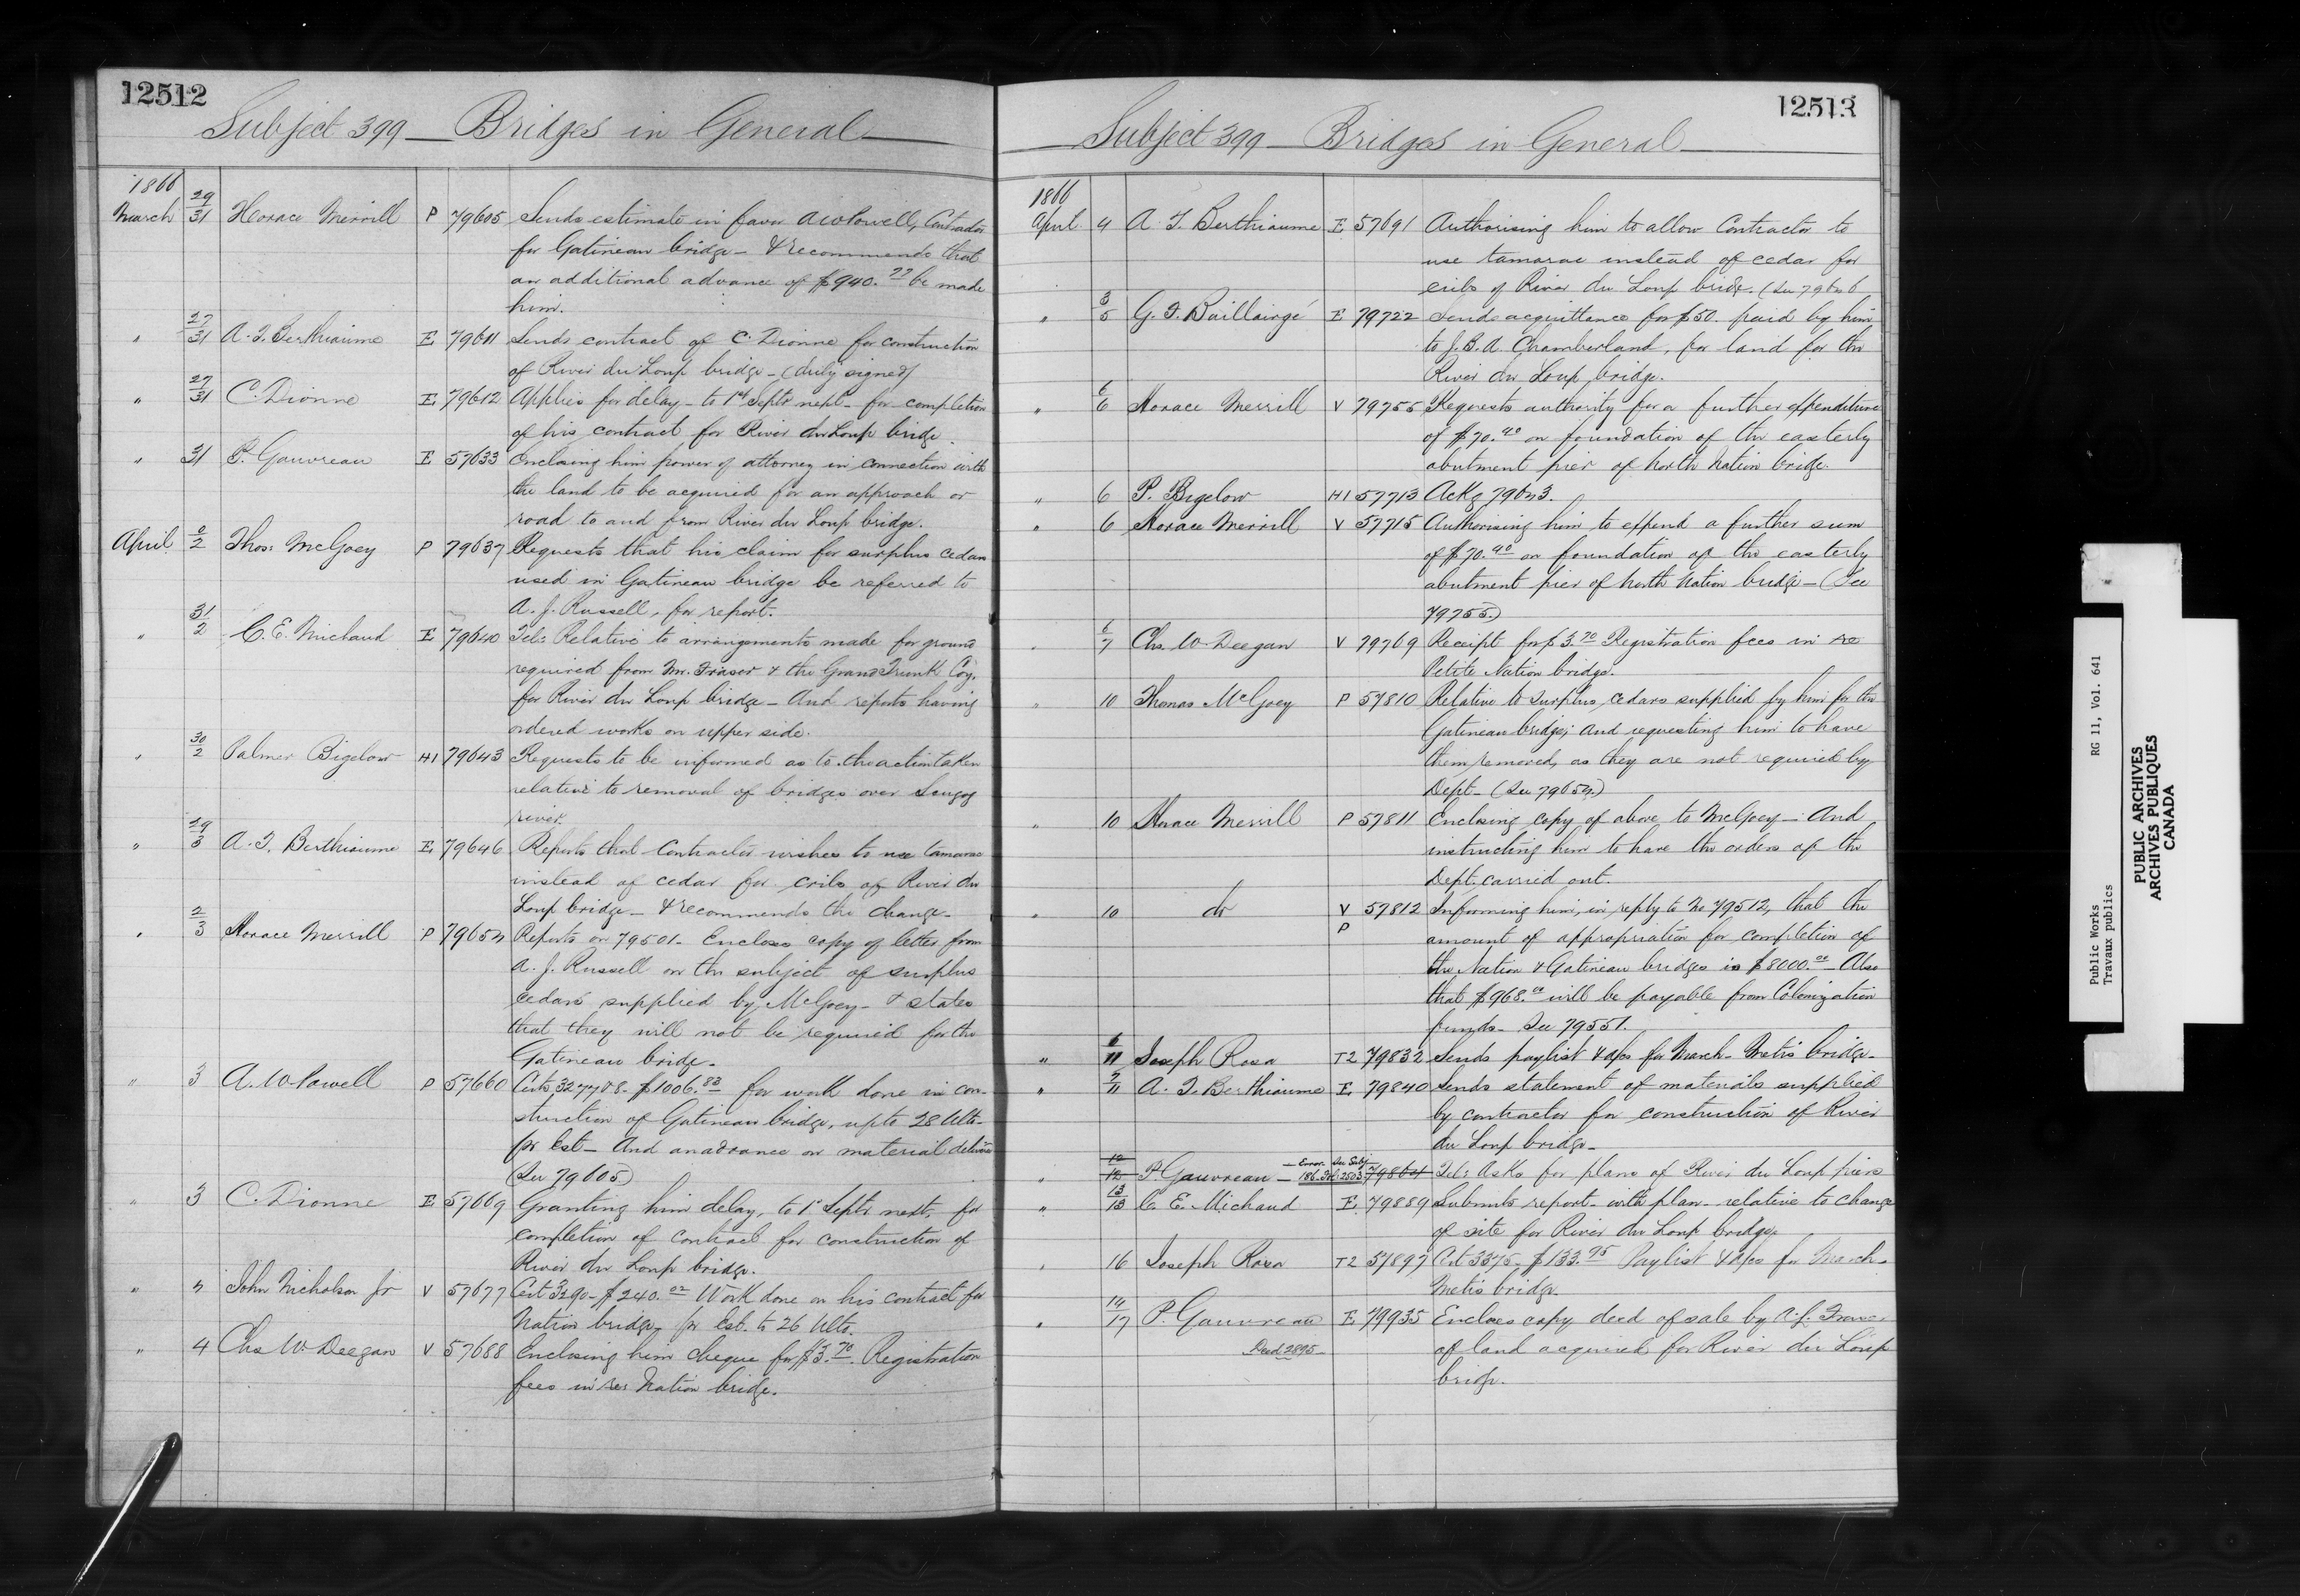 12512
Subject 399 — Bridges in General —
1866
March 29/31 Horace Merrill P 79605 Sends estimate in favor A W Powell, Contractor
for Gatineau bridge — & recommends that
an additional advance of $940.77 be made
him.
" 27/31 A. T. Berthiaume E 79611 Sends contract of C. Dionne for construction
of River du Loup bridge — (duly signed)
" 27/31 C. Dionne E 79612 Applies for delay — to 1st Septr next — for completion
of his contract for River du Loup bridge.
" 31 P. Gauvreau E 57633 Enclosing him power of attorney in connection with
the land to be acquired for an approach or
road to and from River du Loup bridge.
April 2/2 Thos: McGoey P 79637 Requests that his claim for surplus cedars
used in Gatineau bridge be referred to
A. J. Russell, for report.
" 31/2 C. E. Michaud E 79640 Tel: Relative to arrangements made for ground
required from Mr. Fraser & the Grand Trunk Coy.
for River du Loup bridge — And reports having
ordered works on upper side.
" 30/2 Palmer Bigelow H1 79643 Requests to be informed as to the action taken
relative to removal of bridges over Scugog
river.
" 29/3 A. T. Berthiaume E 79646 Reports that Contractor wishes to use tamarac
instead of cedar for cribs of River du
Loup bridge — & recommends the change —
" 2/3 Horace Merrill P 79654 Reports on 79501 — Encloses copy of letter from
A. J. Russell on the subject of surplus
cedars supplied by McGoey — & states
that they will not be required for the
Gatineau bridge.
" 3 A. W. Powell P 57660 Certs 3277 & 8 — $1006.83 for work done in con-
struction of Gatineau bridge, up to 28 Ulto.
pr Est — And an advance on material delivered
(See 79605)
" 3 C. Dionne E 57669 Granting him delay, to 1st Septr next, for
completion of Contract for construction of
River du Loup bridge.
" 4 John Nicholson Jr V 57677 Cert 3290 — $240.02 Work done on his contract for
Nation bridge, pr Est. to 26 Ulto.
" 4 Chs W. Deegan V 57688 Enclosing him cheque for $3.70. Registration
fees in re: Nation bridge.
12513
Subject 399 — Bridges in General —
1866
April 4 A. T. Berthiaume E 57691 Authorising him to allow Contractor to
use tamarac instead of cedar for
cribs of River du Loup bridge. (See 79646
" 3/5 G. F. Baillairgé E 79722 Sends acquittance for $50. paid by him
to J. B. A. Chamberland, for land for the
River du Loup bridge.
" 6/6 Horace Merrill V 79755 Requests authority for a further expenditure
of $70.40 on foundation of the easterly
abutment pier of North Nation bridge.
" 6 P. Bigelow H1 57713 Ackg 79643.
" 6 Horace Merrill V 57715 Authorising him to expend a further sum
of $70.40 on foundation of the easterly
abutment pier of North Nation bridge — (See
79755.)
" 6/7 Chs. W. Deegan V 79769 Receipt for $3.70 Registration fees in re
Petite Nation bridge.
" 10 Thomas McGoey P 57810 Relative to surplus cedars supplied by him for the
Gatineau bridge; And requesting him to have
them removed, as they are not required by
Dept — (See 79654.)
" 10 Horace Merrill P 57811 Enclosing copy of above to McGoey — And
instructing him to have the orders of the
Dept. carried out.
" 10 do V 57812 Informing him, in reply to No 79512, that the
P amount of appropriation for completion of
the Nation & Gatineau bridges is $8000.00 — Also
that $968.00 will be payable from Colonization
funds — See 79551.
" 6/11 Joseph Rosa T2 79832 Sends paylist & a/cs for March — Metis bridge —
" 9/11 A. T. Berthiaume E 79840 Sends statement of materials supplied
by contractor for construction of River
du Loup bridge —
" 12/12 P. Gauvreau — Error See Subj 186. Fol: 2503 79864 Tel: Asks for plans of River du Loup piers
" 13/13 C. E. Michaud E 79889 Submits report — with plan — relative to change
of site for River du Loup bridge.
" 16 Joseph Rosa T2 57897 Cert 3375 — $133.75 Paylist & a/cs for March —
Metis bridge.
" 14/17 P. Gauvreau E 79935 Encloses copy deed of sale by A. f. Fraser
Deed 2895 of land acquired for River du Loup
bridge.
Public Works RG 11, Vol. 641
Travaux publics
PUBLIC ARCHIVES
ARCHIVES PUBLIQUES
CANADA